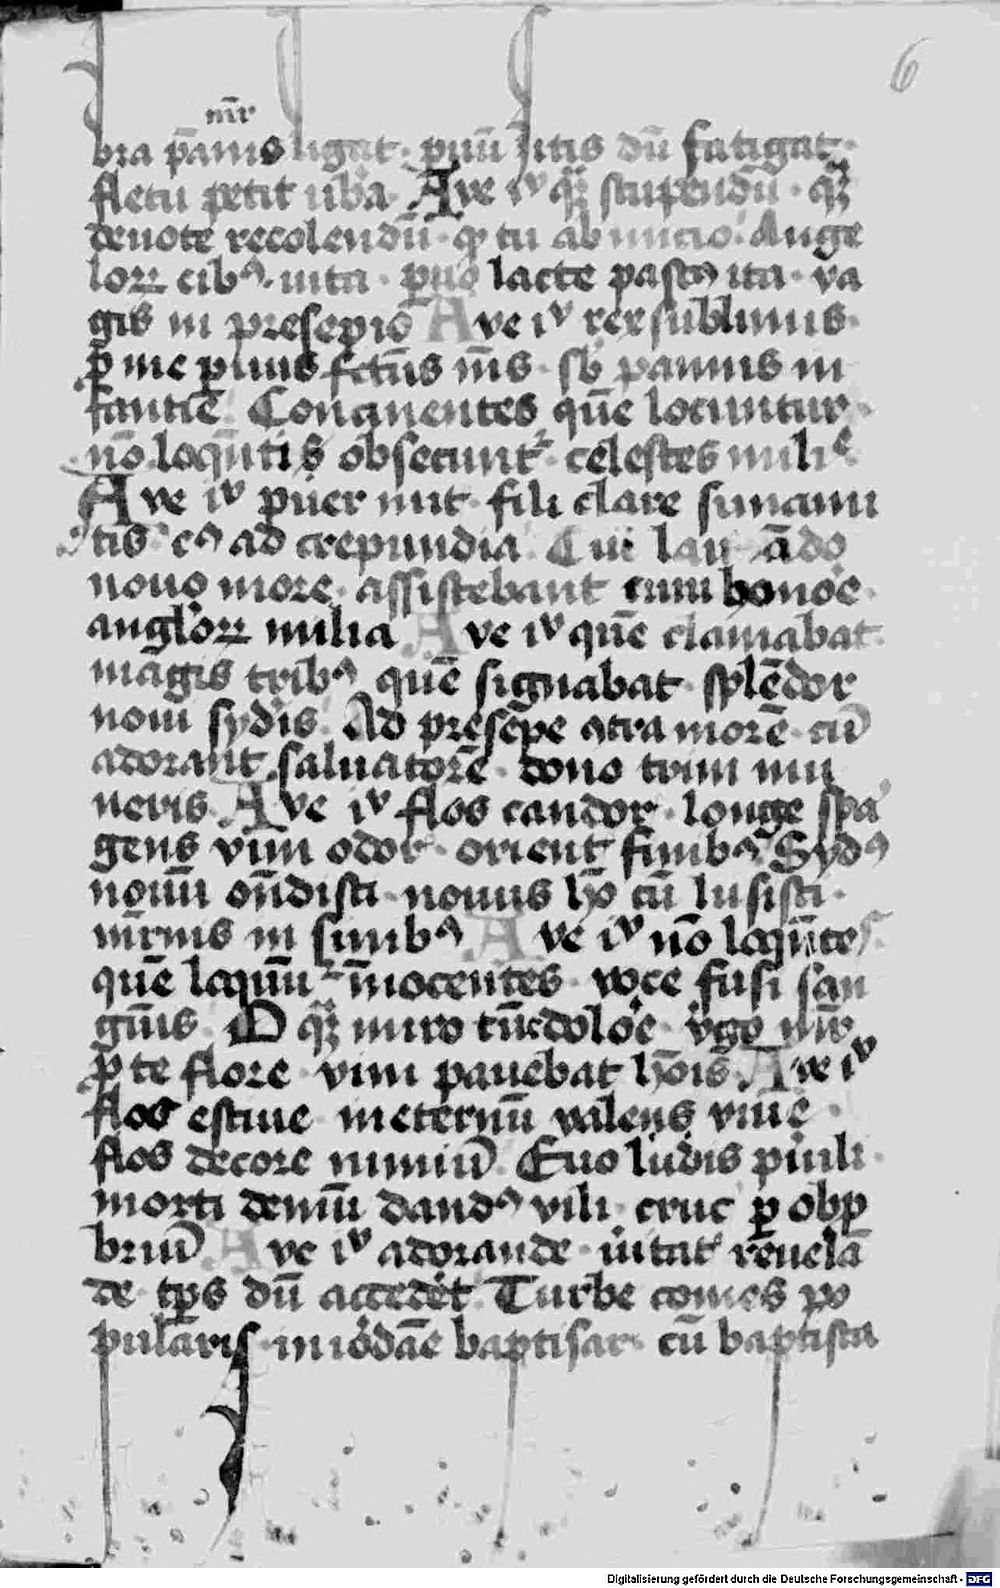 6
mr̄
bra pānis ligat · puū sitis dū fatigat ·
fletu petit ub̄a Ave iv qʒ stupendū · qʒ
deuote recolendū · ꝙ tu ab nutio Ange
loꝝ cibꝰ · uita · puo lacte pastꝰ ita · va
gis in presepio Ave iv rex sublimis ·
ꝑ me pimis fctūs im̄s · sb̄ pannis in
fantie Concinentes quē locuntur ·
nō loqūtis obsecunt᷑ · celestes mili
Ave iv puer nut · fili clare summi
tis eꝰ ad crepundia Cui lau ādo
nouo more · assistebant cum honoe ·
angloꝝ milia Ave iv quē clamabat
magis tribꝰ quē signabat · splēdor
noui syd̓is Ad presepe ꝯtra morē · cū
adorant saluatorē · dono trini mu
neris Ave iv flos candor · longe spa
gens vim odor · orient fimbꝰ Sydꝰ
nouū on̄disti · nouus hō cū lusisti ·
mr̄nis in sinibꝰ Ave iv nō loqūtes
quē loquūt᷑ īnocentes · voce fusi san
gūis O qʒ miro tūc doloe · v̓go mr̄
ꝑ te flore · vim pauebat hōis Ave iv
flos estiue · in eternū valens viue ·
flos decore nimiū Euo ludis piuli ·
morti demū dandꝰ vili · cruc ꝑ obp
briū Ave iv adorande · uitat᷑ reuelā
de · tp̄s dū accedet Turbe comes po
pulāris · in iodāe baptisar · cū baptista
Digitalisierung gefördert durch die Deutsche Forschungsgemeinschaft - DFG